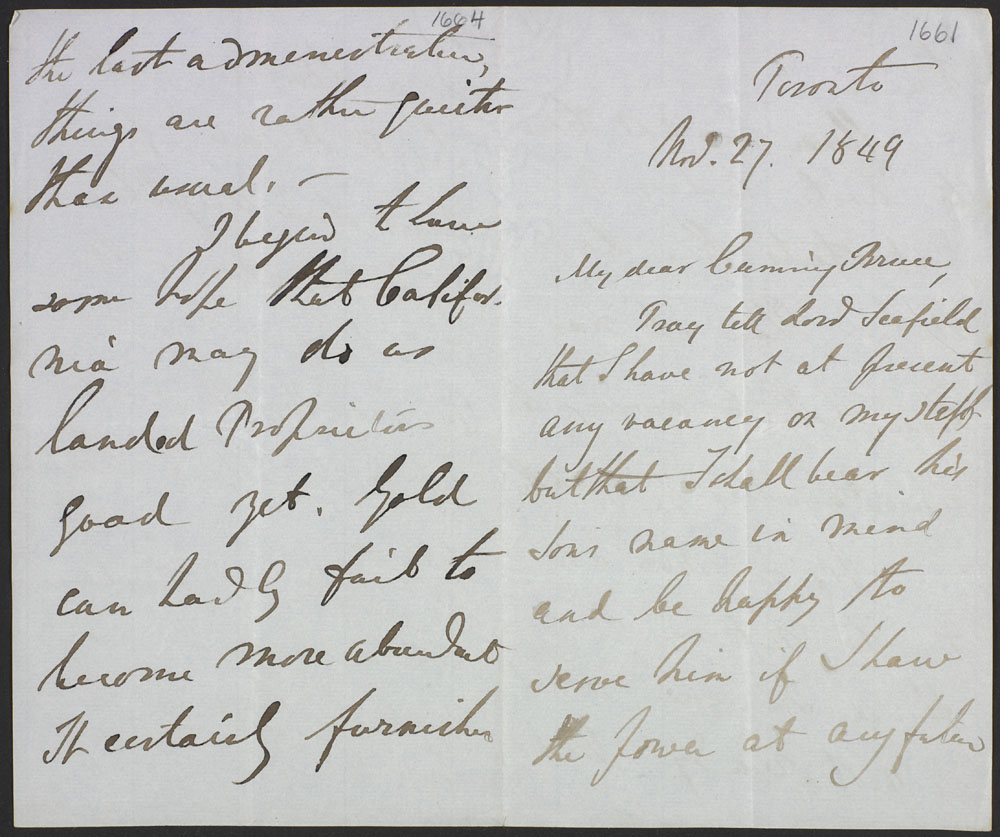 1664
the last administration,
things are rather quieter
than usual. —
I begin to have
some hope that Califor-
nia may do us
landed Proprietors
good yet. Gold
can hardly fail to
become more abundant
It certainly furnishes
1661
Toronto
Nov. 27. 1849
My dear Cumming Bruce,
Pray tell Lord Seafield
that I have not at present
any vacancy on my staff
but that I shall bear his
sons name in mind
and be happy to
serve him if I have
the power at any future